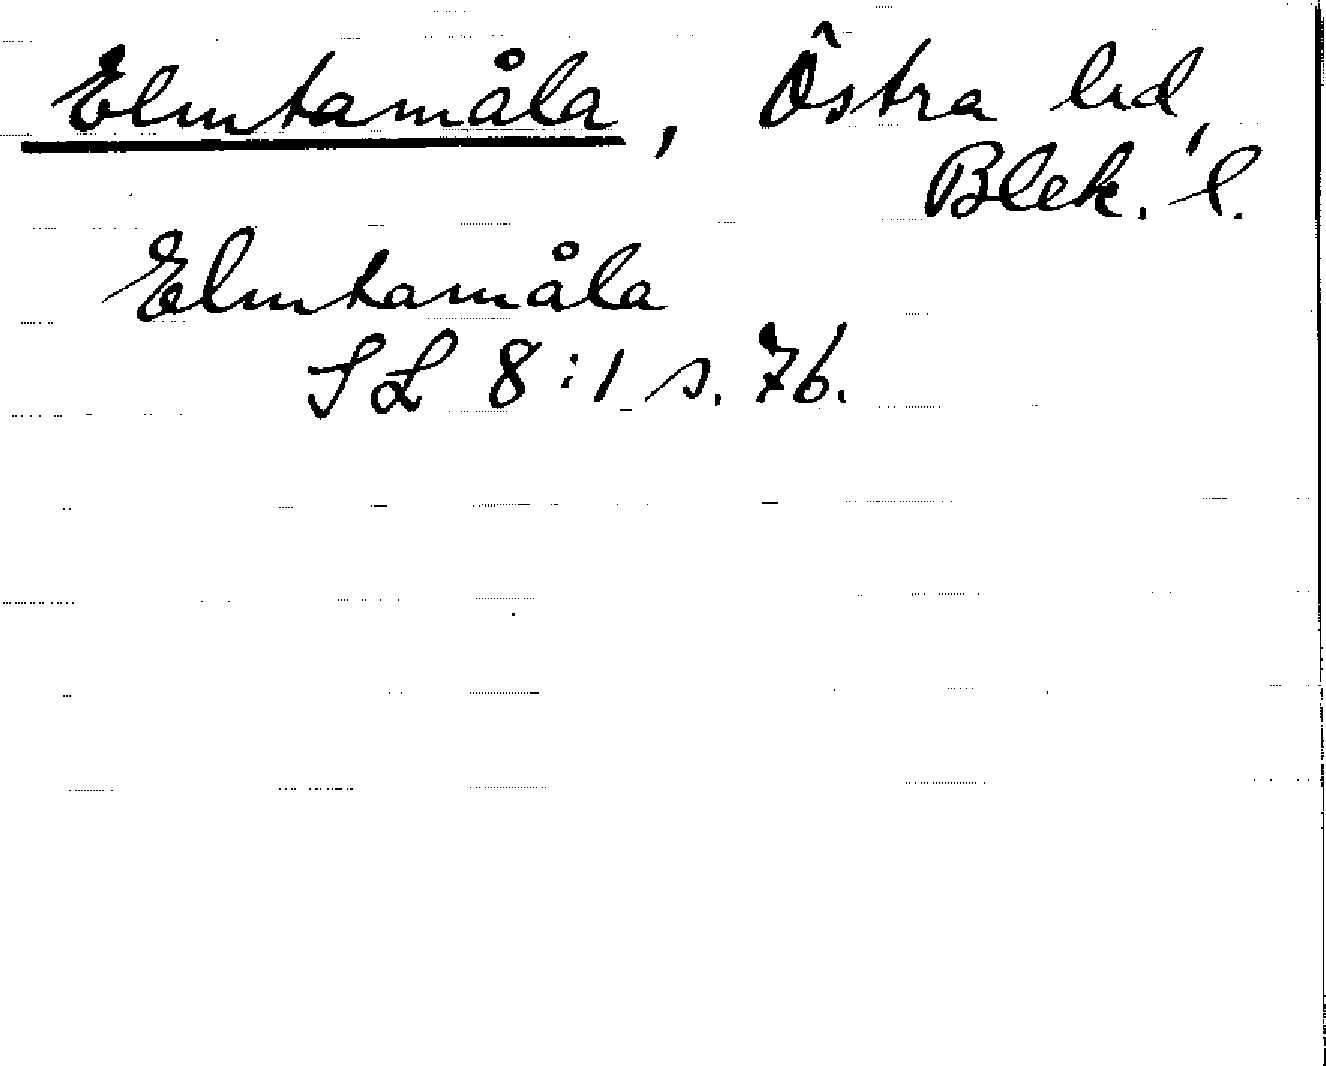 Elmtamåla, Östra hd,
Blek. l.
Elmtamåla
SL 8:1 s. 76.